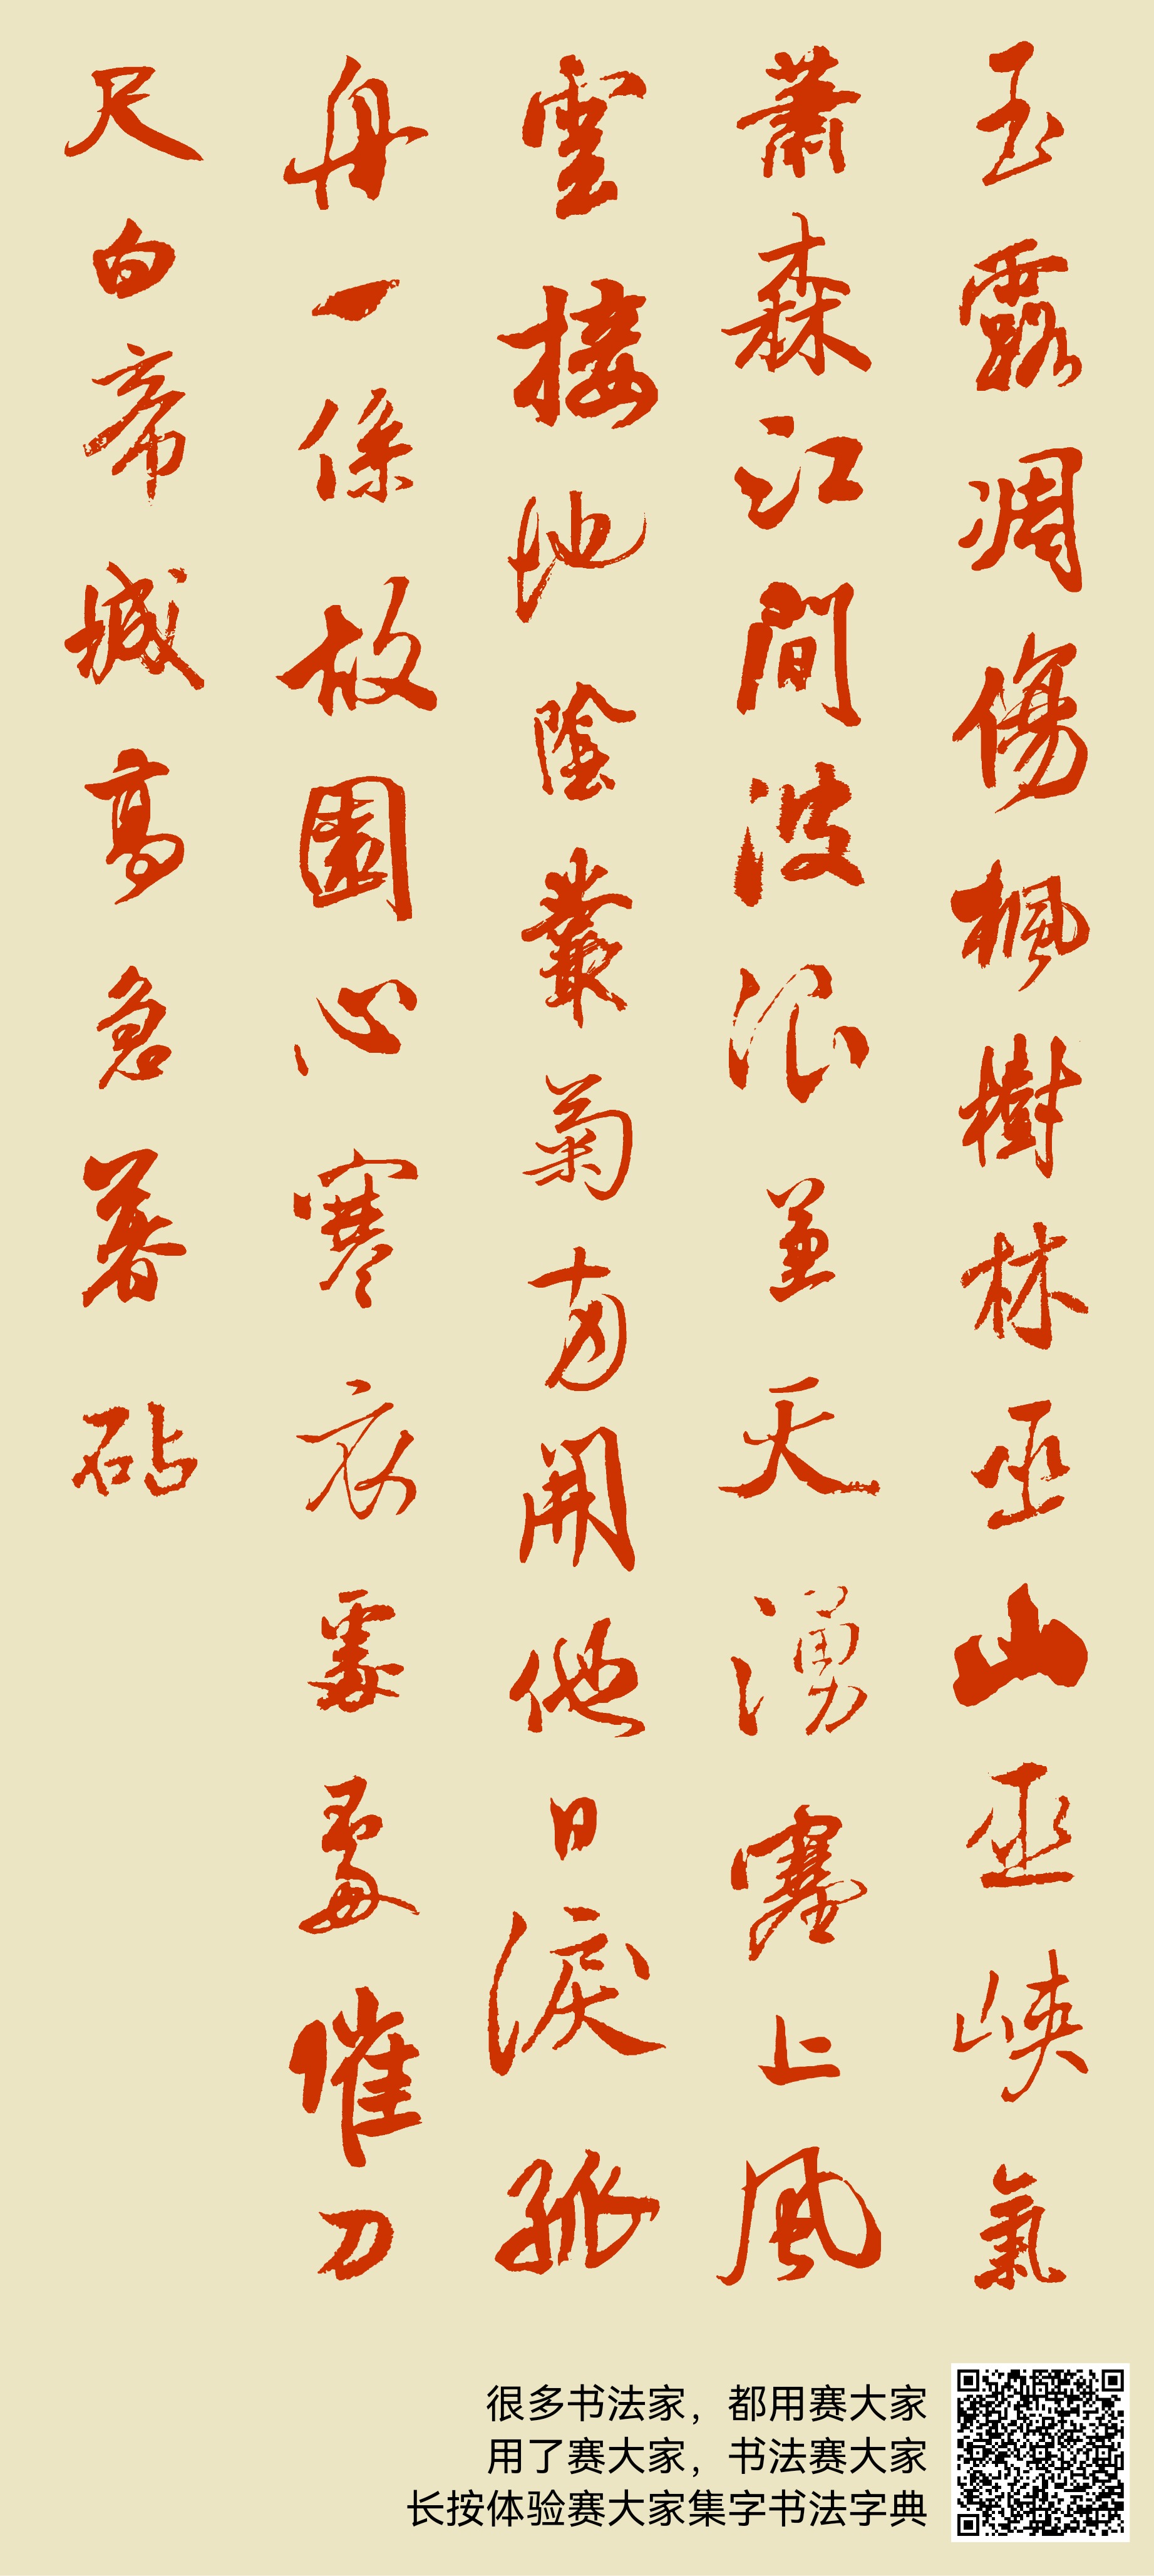 玉露凋傷楓樹林巫山巫峽氣
蕭森江間波浪兼天湧塞上風
雲接地陰叢菊兩開他日淚孤
舟一係故園心寒衣處處催刀
尺白帝城高急暮砧
很多书法家，都用赛大家
用了赛大家，书法赛大家
长按体验赛大家集字书法字典